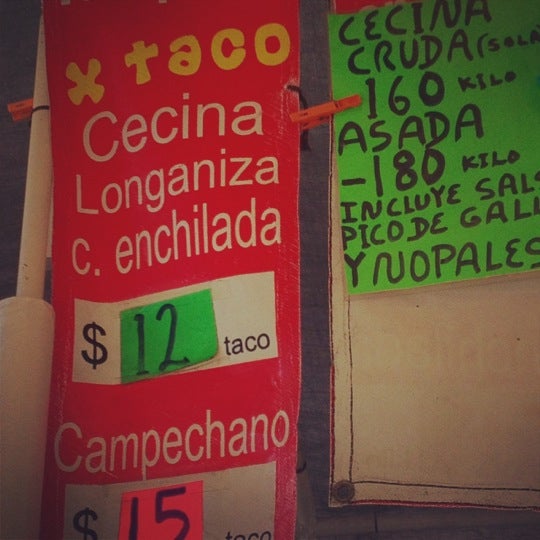 x taco
Cecina
Longaniza
c. enchilada
$ 12 taco
Campechano
$ 15 taco
CECINA
CRUDA (SOLA
-160 KILO
ASADA
-180 KILO
INCLUYE SALS
PICO DE GALL
Y NOPALES